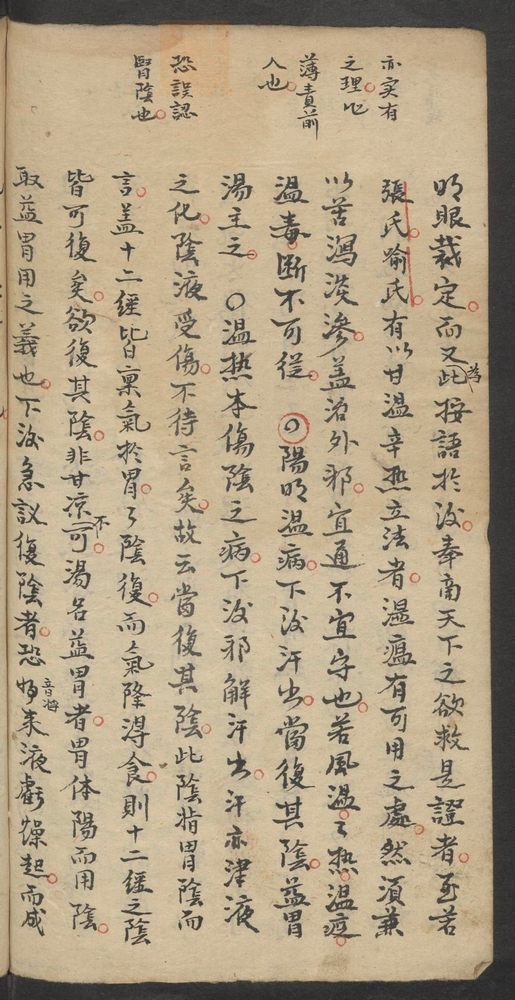 亦実有
之理。叱
薄責前
人也。
恐誤認
腎陰也。
明眼裁定。而又為此按語於後。奉商天下之欲救是證者。至若
張氏。喻氏。有以甘温辛热立法者。温瘟有可用之處。然須兼
以苦瀉淡滲。盖治外邪。宜通不宜守也。若風温。温热。温疫。
温毒。断不可從。〇陽明温病。下後汗出。當復其陰。益胃
湯主之。〇温热本傷陰之病。下後邪解汗出。汗亦津液
之化。陰液受傷。不待言矣。故云當復其陰。此陰指胃陰而
言。盖十二經皆稟氣於胃。胃陰復。而氣降得食。則十二經之陰
皆可復矣。欲復其陰。非甘凉不可。湯名益胃者。胃体陽而用陰。
取益胃用之義也。下後急議復陰者。恐將来液虧燥起。而成